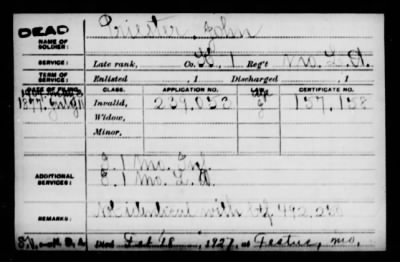 DEAD Priester, John
NAME OF SOLDIER:
SERVICE: Late rank, Co. H, 1 Reg't Mo. L. A.
TERM OF SERVICE: Enlisted , 1 Discharged , 1
DATE OF FILING. CLASS. APPLICATION NO. LAW. CERTIFICATE NO.
1877 July Invalid, 239,053 157,158
Widow,
Minor,
ADDITIONAL SERVICES: I 1 Mo. Inf.
E. 1 Mo. L. A.
REMARKS: with Ctf
Died Feb 18, 1927, at Festus, Mo.